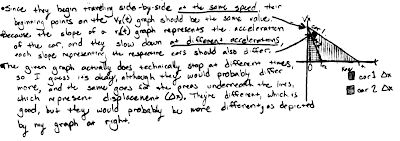 • Since they begin traveling side-by-side at the same speed, their
beginning points on the Vx(t) graph should be the same value.
• Because the slope of a Vx(t) graph represents the acceleration
of the car, and they slow down at different accelerations,
each slope representing the respective cars should also differ.
• The given graph actually does technically stop at different times,
so I guess its okay, although they would probably differ
more, and the same goes for the areas underneath the lines,
which represent displacement (Δx). They're different, which is
good, but they would probably be more different, as depicted
by my graph at right.
Key:
car 1 Δx
car 2 Δx